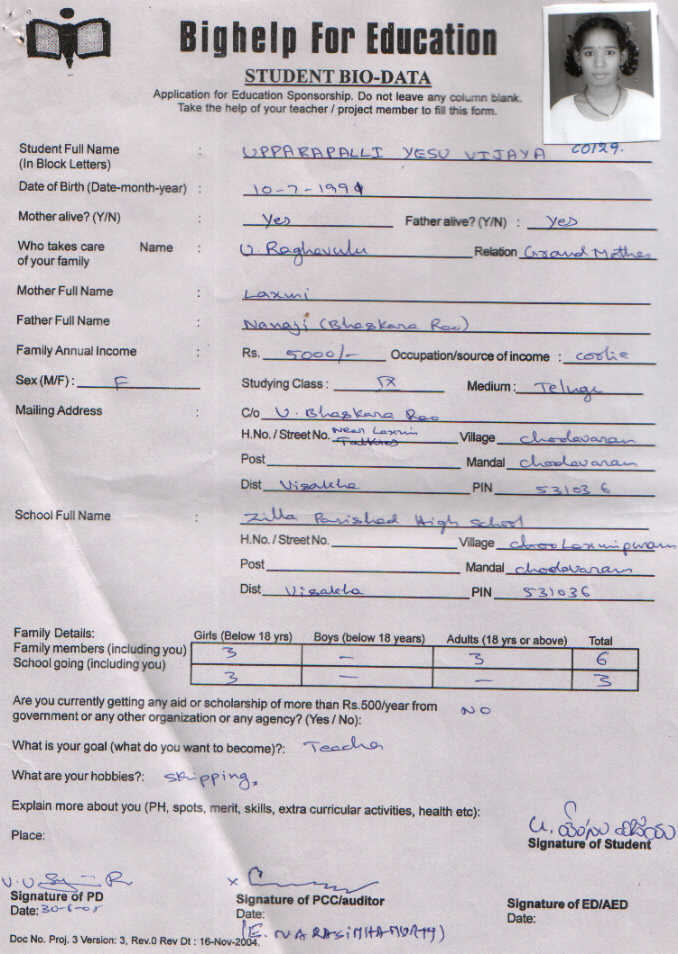 Bighelp For Education
STUDENT BIO-DATA
Application for Education Sponsorship. Do not leave any column blank.
Take the help of your teacher / project member to fill this form.
Student Full Name : UPPARAPALLI YESU VIJAYA C0129.
(In Block Letters)
Date of Birth (Date-month-year) : 10-7-1991
Mother alive? (Y/N) : Yes Father alive? (Y/N) : Yes
Who takes care Name : U. Raghavulu Relation Grand Mother
of your family
Mother Full Name : Laxmi
Father Full Name : Nanaji (Bhaskara Rao)
Family Annual Income : Rs. 5000/- Occupation/source of income : coolie
Sex (M/F) : F Studying Class : IX Medium : Telugu
Mailing Address : C/o U. Bhaskara Rao
H.No. / Street No. Near Laxmi Talkies Village chodavaram
Post Mandal chodavaram
Dist Visakha PIN 531036
School Full Name : Zilla Parishad High School
H.No. / Street No. Village Laxmipuram
Post Mandal chodavaram
Dist Visakha PIN 531036
Family Details: Girls (Below 18 yrs) Boys (below 18 years) Adults (18 yrs or above) Total
Family members (including you) 3 - 3 6
School going (including you) 3 - - 3
Are you currently getting any aid or scholarship of more than Rs.500/year from NO
government or any other organization or any agency? (Yes / No):
What is your goal (what do you want to become)?: Teacher
What are your hobbies?: Skipping,
Explain more about you (PH, spots, merit, skills, extra curricular activities, health etc):
Place:
Signature of Student
Signature of PD Signature of PCC/auditor Signature of ED/AED
Date: Date: Date:
(E. NARASIMHAMURTY)
Doc No. Proj. 3 Version: 3, Rev.0 Rev Dt : 16-Nov-2004.